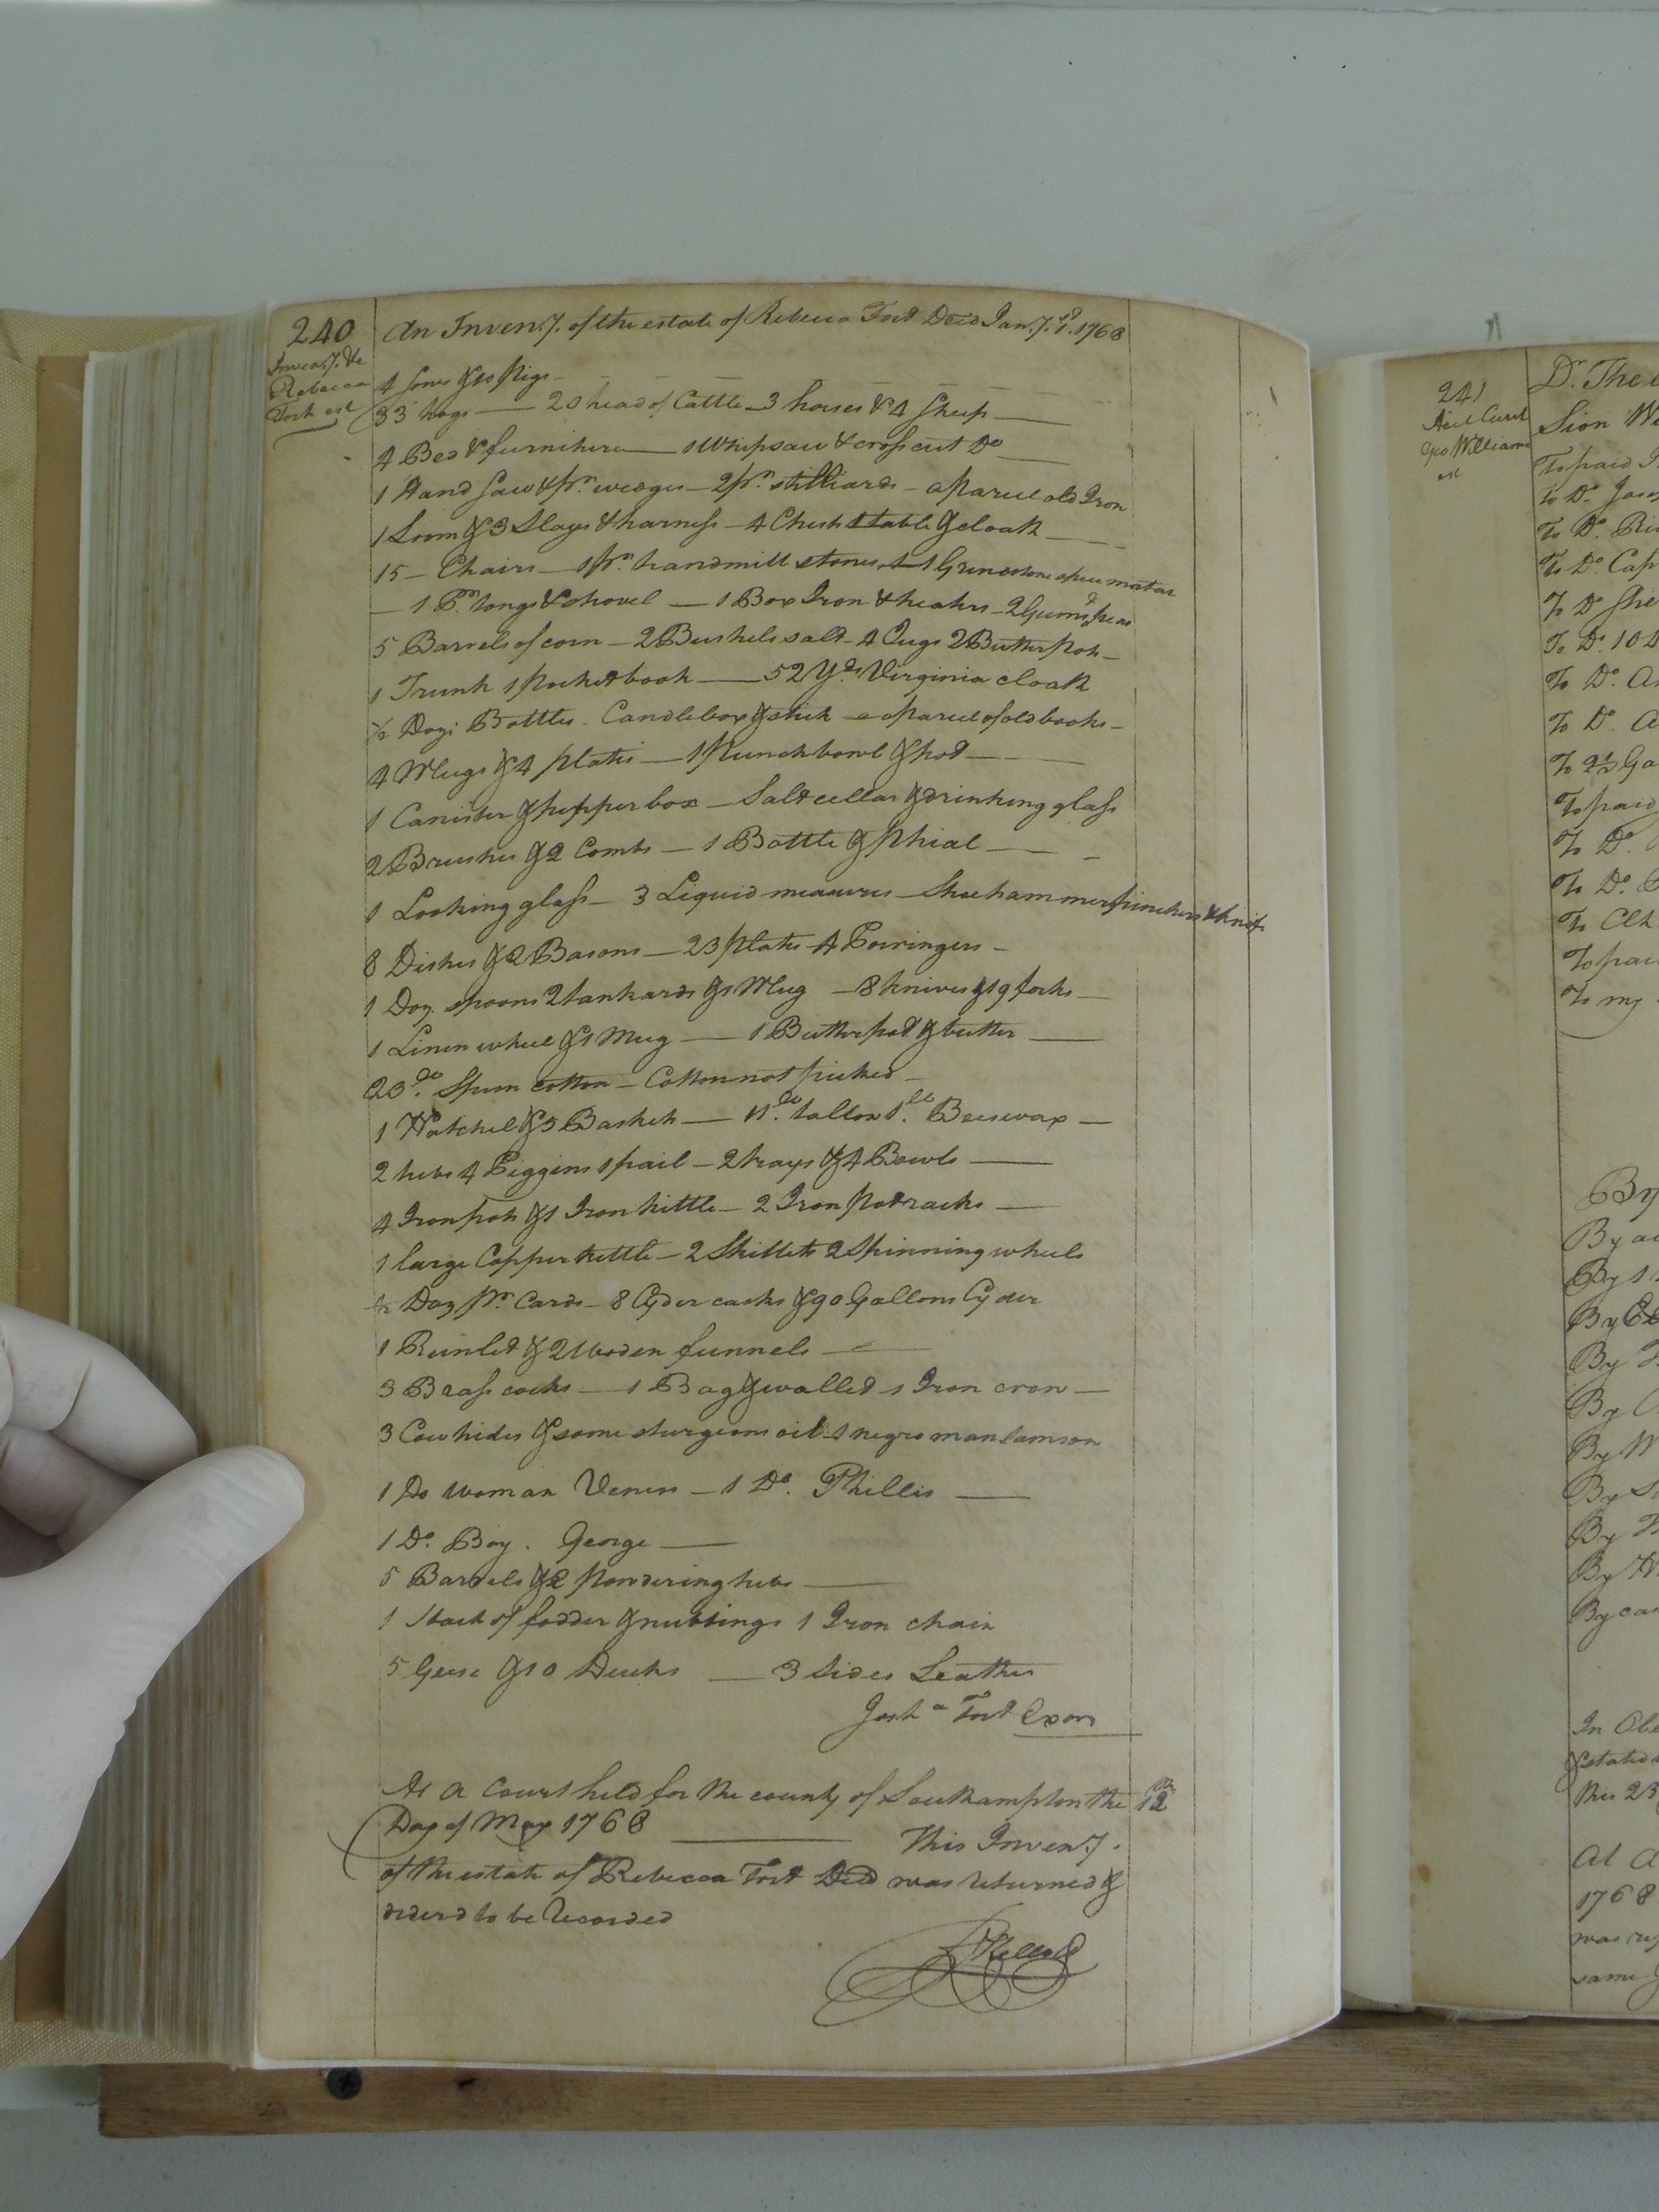 240
Inven.y. &c
Rebecca
Fort est
An Inven.y. of the estate of Rebecca Fort Decd Jan.y. 1. 1768
4 sows & 10 Pigs
33 hogs — 20 head of Cattle — 3 horses & 4 Sheep —
4 Bed & furniture — 1 Whipsaw & cross cut Do —
1 Hand saw & pr. wedges — 2 pr. stilliards — a Parcel old Iron
1 Loom & 3 Slays & harness — 4 Chests 1 table & cloath —
15 — Chairs — 1 pr. handmill stones & 1 Grinestone spice mortar
— 1 Pr. tongs & shovel — 1 Box Iron & heaters — 2 Gums & peas
5 Barrels of corn — 2 Bushels salt — 4 Jugs 2 Butter Pots —
1 Trunk 1 Pocket book — 52 Yds Virginia cloath
½ Doz: Bottles — Candlebox & stick — a Parcel of old books —
4 Mugs & 4 plates — 1 Punch bowl & pot —
1 Canister & pepper box — Salt cellar & drinking glass
2 Brushes & 2 Combs — 1 Bottle & Phial —
1 Looking glass — 3 Liquid measures — Shoe hammer pinchers & knife
8 Dishes & 2 Basons — 23 plates 4 Porringers —
1 Doz. spoons 2 tankards & 1 Mug — 8 knives & 19 forks —
1 Linen wheel & 1 Mug — 1 Butter pot & butter —
23 lb. Spun cotton — Cotton not picked —
1 Hatchel & 3 Baskets — 11 lb. tallow 1 lb. Beeswax —
2 tubs 4 Piggins 1 pail — 2 trays & 4 Bowls —
4 Iron pots & 1 Iron kittle — 2 Iron Potracks —
1 large Copper kettle — 2 Skillets 2 Spinning wheels
½ Doz pr. Cards — 8 Cyder casks & 90 Gallons Cyder
1 Runlet & 2 Wooden funnels —
3 Brass cocks — 1 Bag & wallet 1 Iron crow —
3 Cow hides & some sturgeons oil 1 negro man Samson
1 Do woman Venus — 1 Do. Phillis —
1 Do. Boy. George —
5 Barrels & 2 Powdering tubs —
1 Stack of fodder & nubbings 1 Iron chain
5 Geese & 10 Ducks — 3 sides Leather
Josha Fort Exor
At a Court held for the county of Southampton the 12th
Day of May 1768 — This Inven.y.
of the estate of Rebecca Fort Decd was returned &
orderd to be Recorded
241
Geo Williams
est
Dr. The
Sion
To paid
To Do.
To Do.
To Do. Cap
To Do
To Do. 10
To Do.
To Do.
To
To paid
To Do.
To Do.
To Clk
To
To my
By
By
By 1
By
By
By
By
By
By
By
By
In Obe
this 23
At a
1768
same